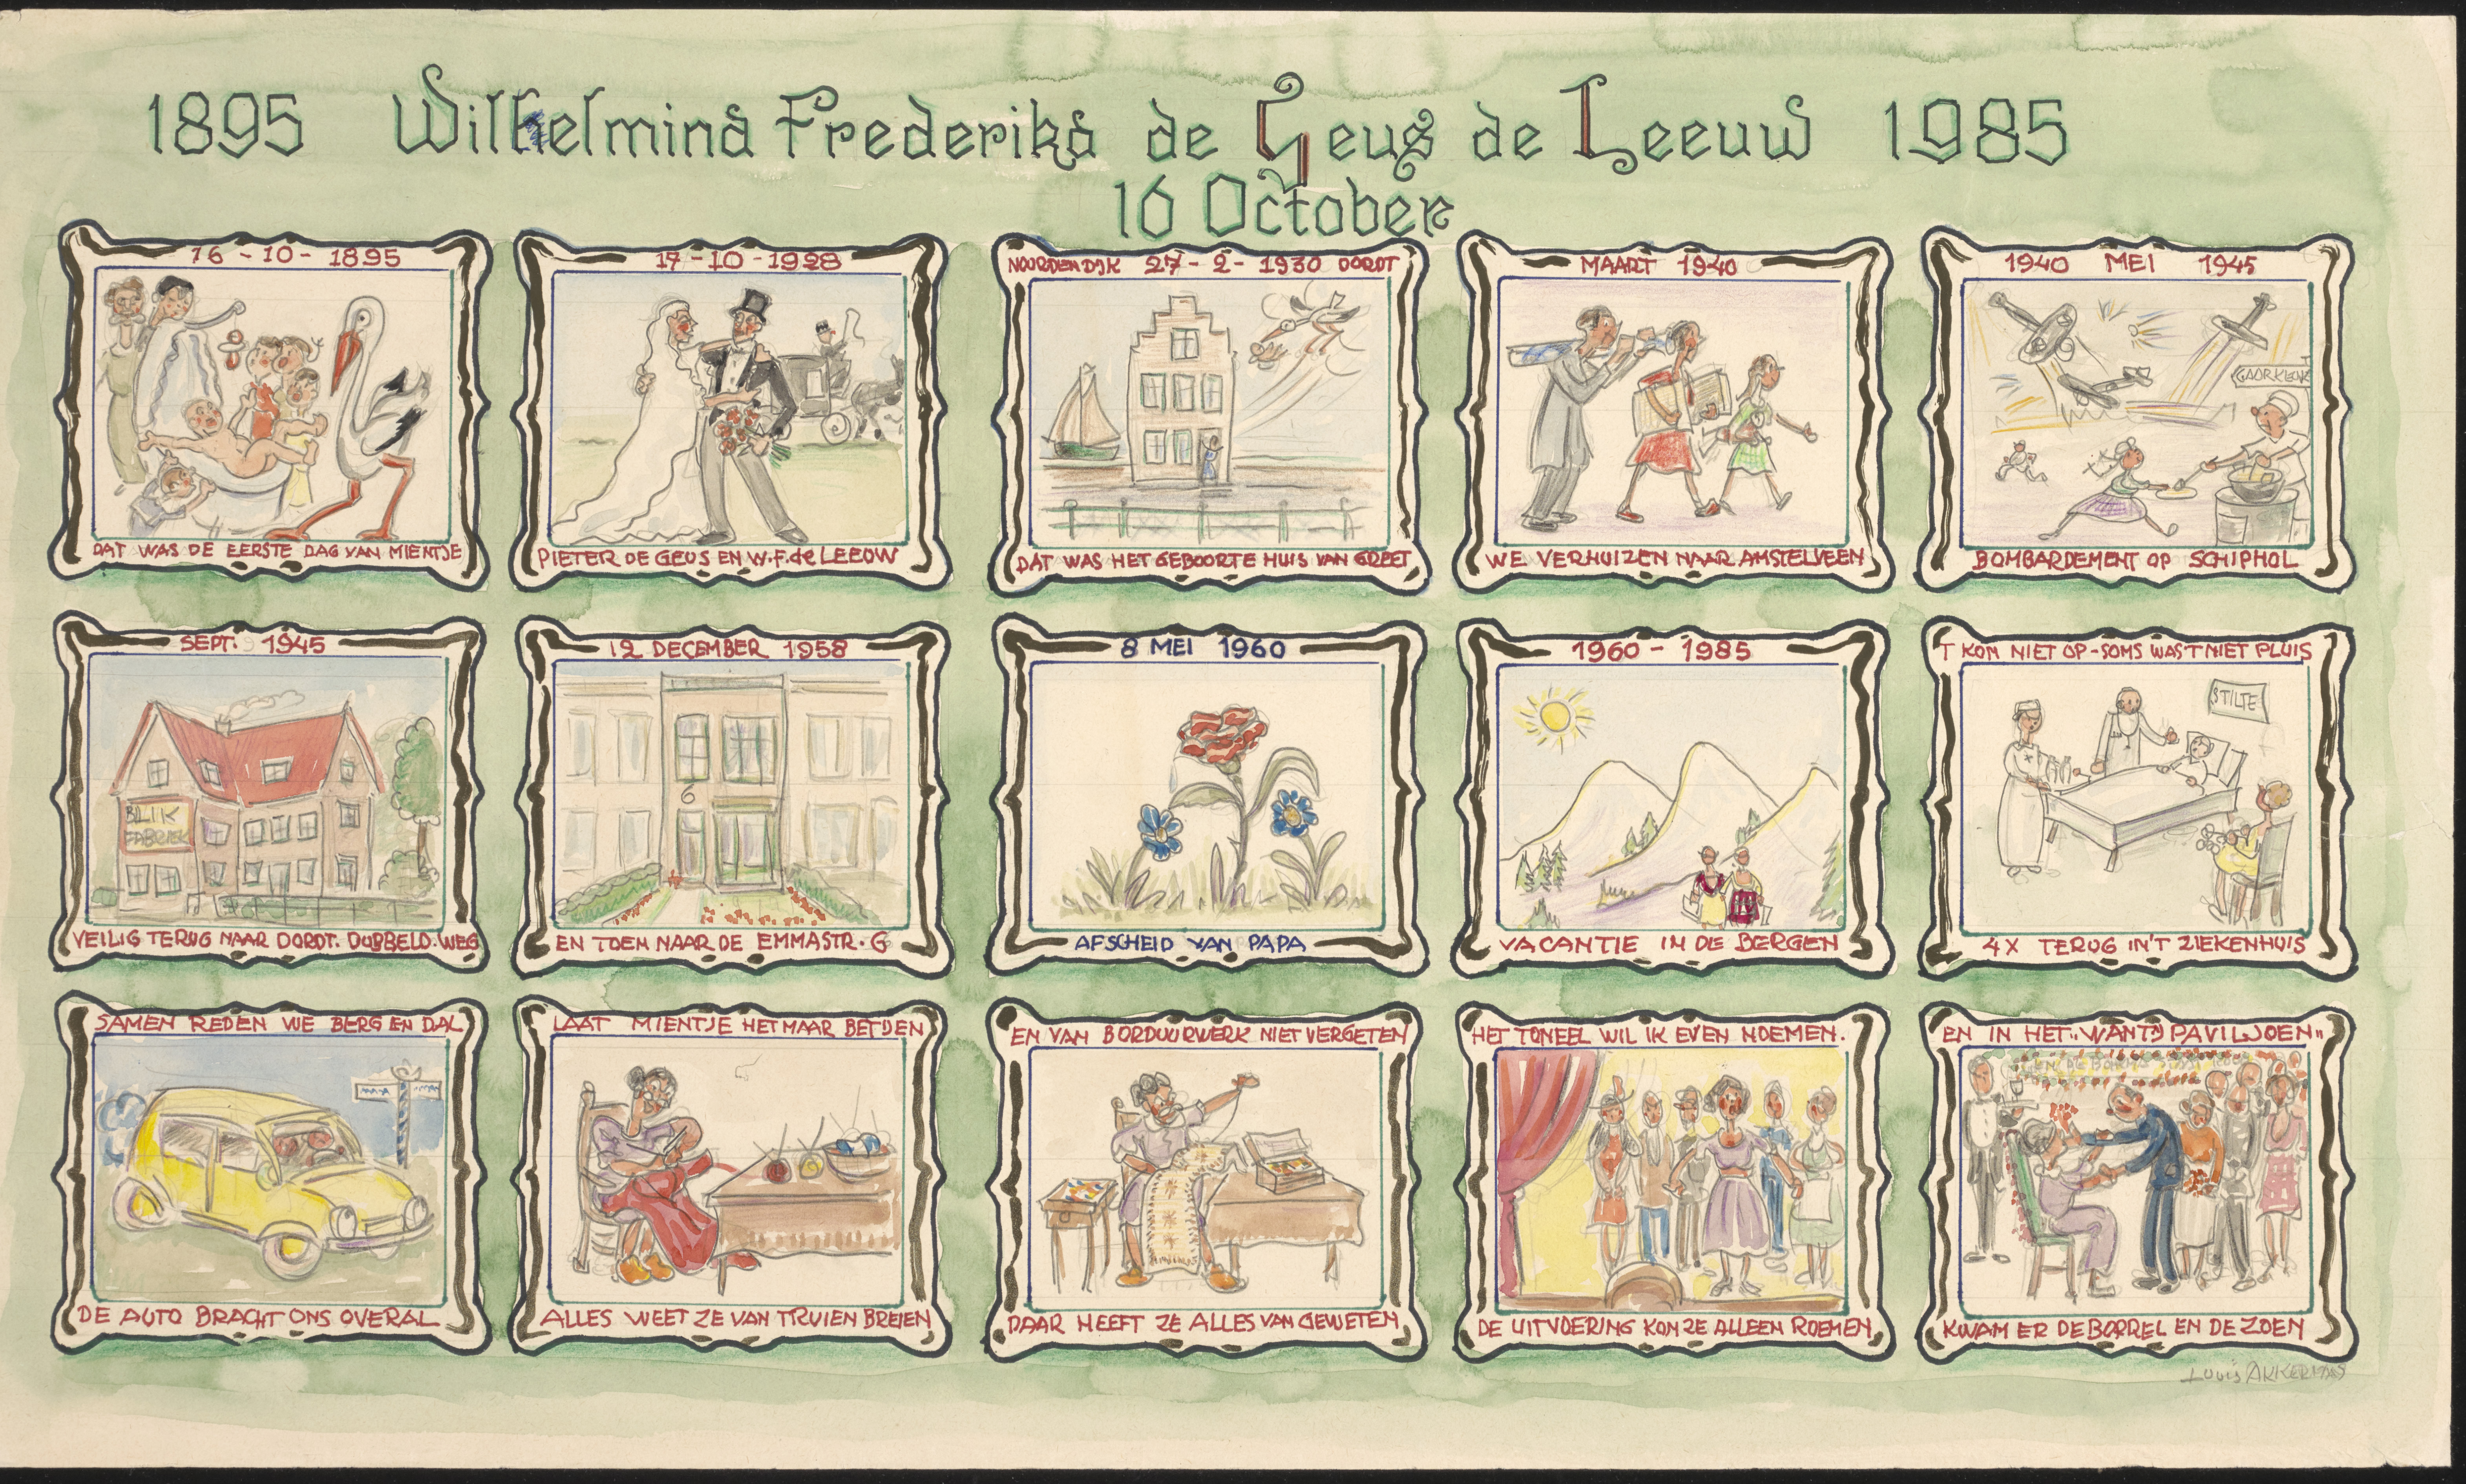 1895 Wilhelmina Frederika de Geus de Leeuw 1985
16 October
16-10-1895
DAT WAS DE EERSTE DAG VAN MIENTJE
17-10-1928
PIETER DE GEUS EN W.F. de LEEUW
NOORDENDIJK 27-2-1930 DORDT
DAT WAS HET GEBOORTE HUIS VAN GREET
MAART 1940
WE VERHUIZEN NAAR AMSTELVEEN
1940 MEI 1945
GAARKEUK
BOMBARDEMENT OP SCHIPHOL
SEPT. 1945
BLIK
FABRIEK
VEILIG TERUG NAAR DORDT. DUBBELD. WEG
12 DECEMBER 1958
6
EN TOEN NAAR DE EMMASTR. 6
8 MEI 1960
AFSCHEID VAN PAPA
1960-1985
VACANTIE IN DE BERGEN
T KON NIET OP-SOMS WAS T NIET PLUIS
STILTE
4X TERUG IN'T ZIEKENHUIS
SAMEN REDEN WE BERG EN DAL
DE AUTO BRACHT ONS OVERAL
LAAT MIENTJE HET MAAR BETIJEN
ALLES WEET ZE VAN TRUIEN BREIEN
EN VAN BORDUURWERK NIET VERGETEN
DAAR HEEFT ZE ALLES VAN GEWETEN
HET TONEEL WIL IK EVEN NOEMEN.
DE UITVOERING KON ZE ALLEEN ROEMEN
EN IN HET "WANTIJ PAVILJOEN"
KWAM ER DE BORREL EN DE ZOEN
Louis AKKERMANS